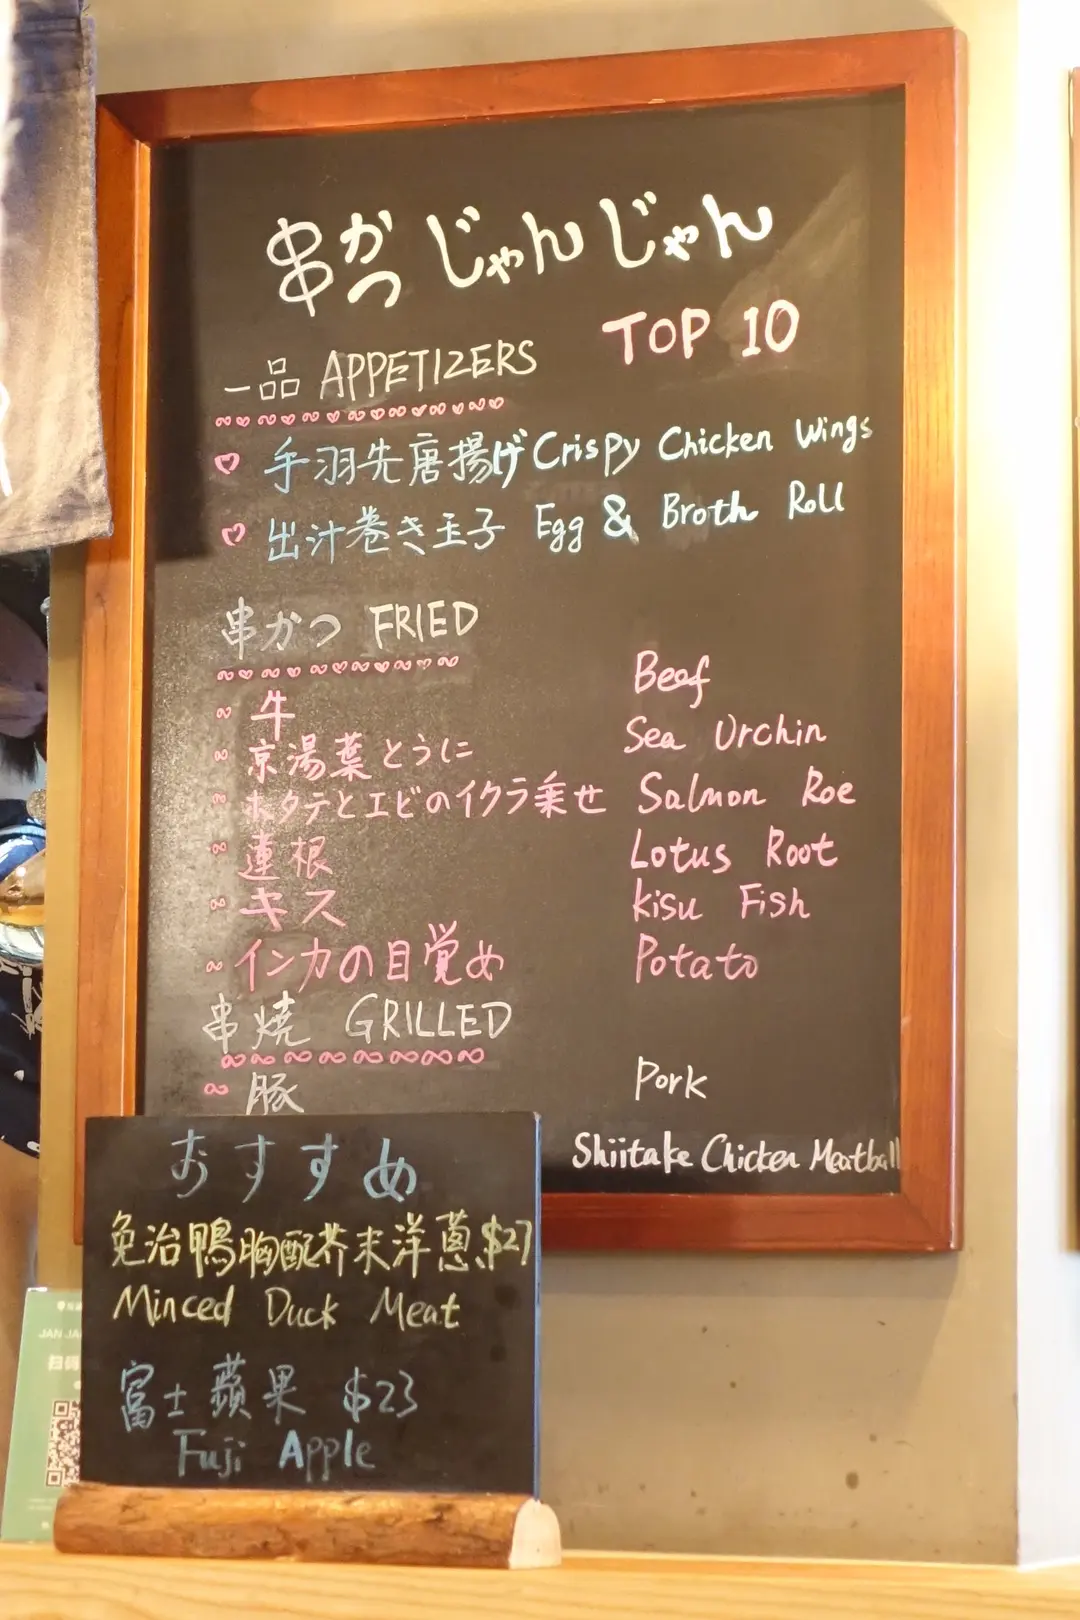 串かつ じゃんじゃん
TOP 10
一品 APPETIZERS
手羽先唐揚げ Crispy Chicken Wings
出汁巻き玉子 Egg & Broth Roll
串かつ FRIED
牛 Beef
京湯葉とうに Sea Urchin
ホタテとエビのイクラ乗せ Salmon Roe
蓮根 Lotus Root
キス Kisu Fish
インカの目覚め Potato
串焼 GRILLED
豚 Pork
Shiitake Chicken Meatball
おすすめ
免治鴨胸配芥末洋蔥 $27
Minced Duck Meat
富士蘋果 $23
Fuji Apple
扫码